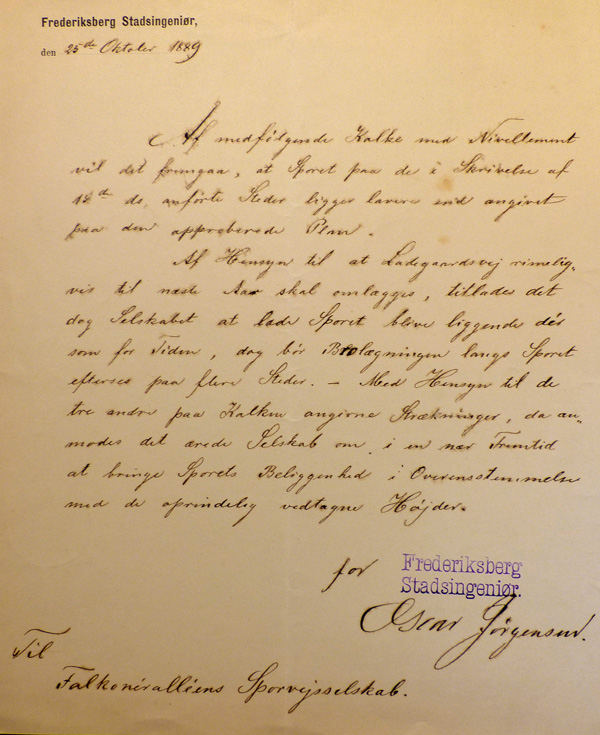 Frederiksberg Stadsingeniør,
den 25de Oktober 1889
Af medfølgende Kalke med Nivellement
vil det fremgaa, at Sporet paa de i Skrivelse af
15de ds. anførte Steder ligger lavere end angivet
paa den approberede Plan.
Af Hensyn til at Ladegaardsvej rimelig-
vis til næste Aar skal omlægges, tillades det
dog Selskabet at lade Sporet blive liggende dér
som for Tiden, dog bør Brolægningen langs Sporet
efterses paa flere Steder. — Med Hensyn til de
tre andre paa Kalken angivne Strækninger, da an-
modes det ærede Selskab om i en nær Fremtid
at bringe Sporets Beliggenhed i Overensstemmelse
med de oprindelig vedtagne Højder.
for Frederiksberg
Stadsingeniør.
Oscar Jørgensen.
Til
Falkoneralléens Sporvejsselskab.